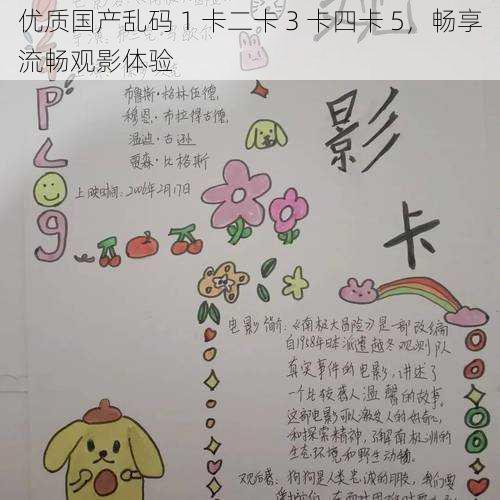 优质国产乱码 1 卡二卡 3 卡四卡 5，畅享
流畅观影体验
观
影
卡
PLog
布鲁斯·格林伍德,
穆恩·布拉得古德,
温迪·古逊
贾森·比格斯
上映时间：2006年2月17日
电影简介：《南极大冒险》是一部改编
自1958年日本派遣越冬观测队
真实事件的电影，讲述了
一个比较感人温馨的故事。
这部电影可以激发人的好奇心
和探索精神，了解南极洲的
生态环境和野生动物。
观后感：狗狗是人类忠诚的朋友，我们要